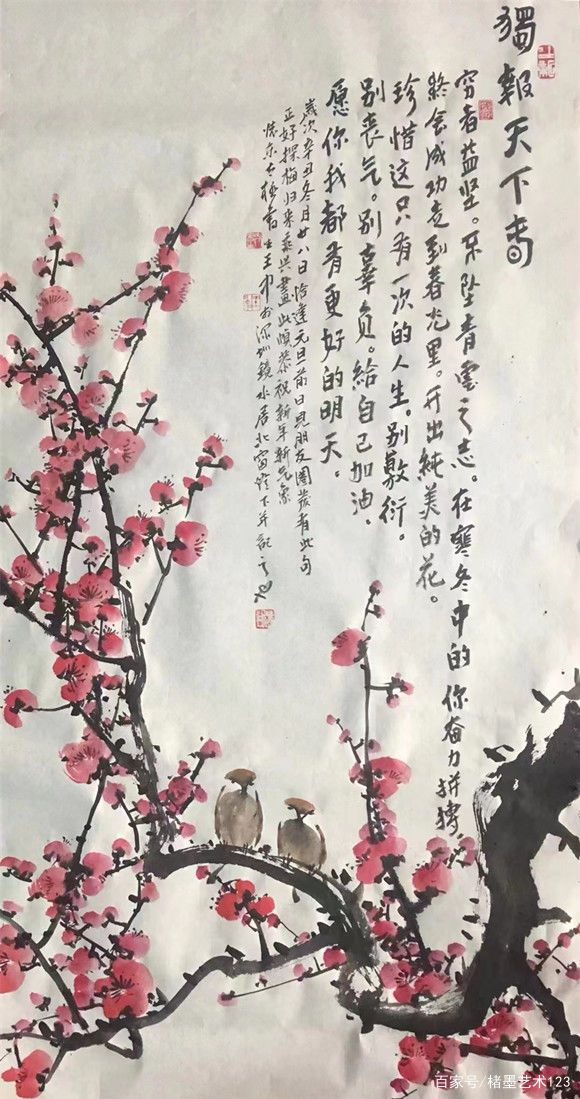 獨報天下春
穷者益坚。不坠青雲之志。在寒冬中的你奋力拼搏
終会成功走到春光里。开出純美的花。
珍惜这只有一次的人生。别敷衍。
别丧气。别辜负。給自己加油。
愿你我都有更好的明天。
歲次辛丑冬月廿八日恰逢元旦前日見朋友圈發有此句
正好探梅归来乘興畫此順恭祝新年新气象
書生王中於深圳鏡水居北窗燈下并記之也
百家号/楮墨艺术123